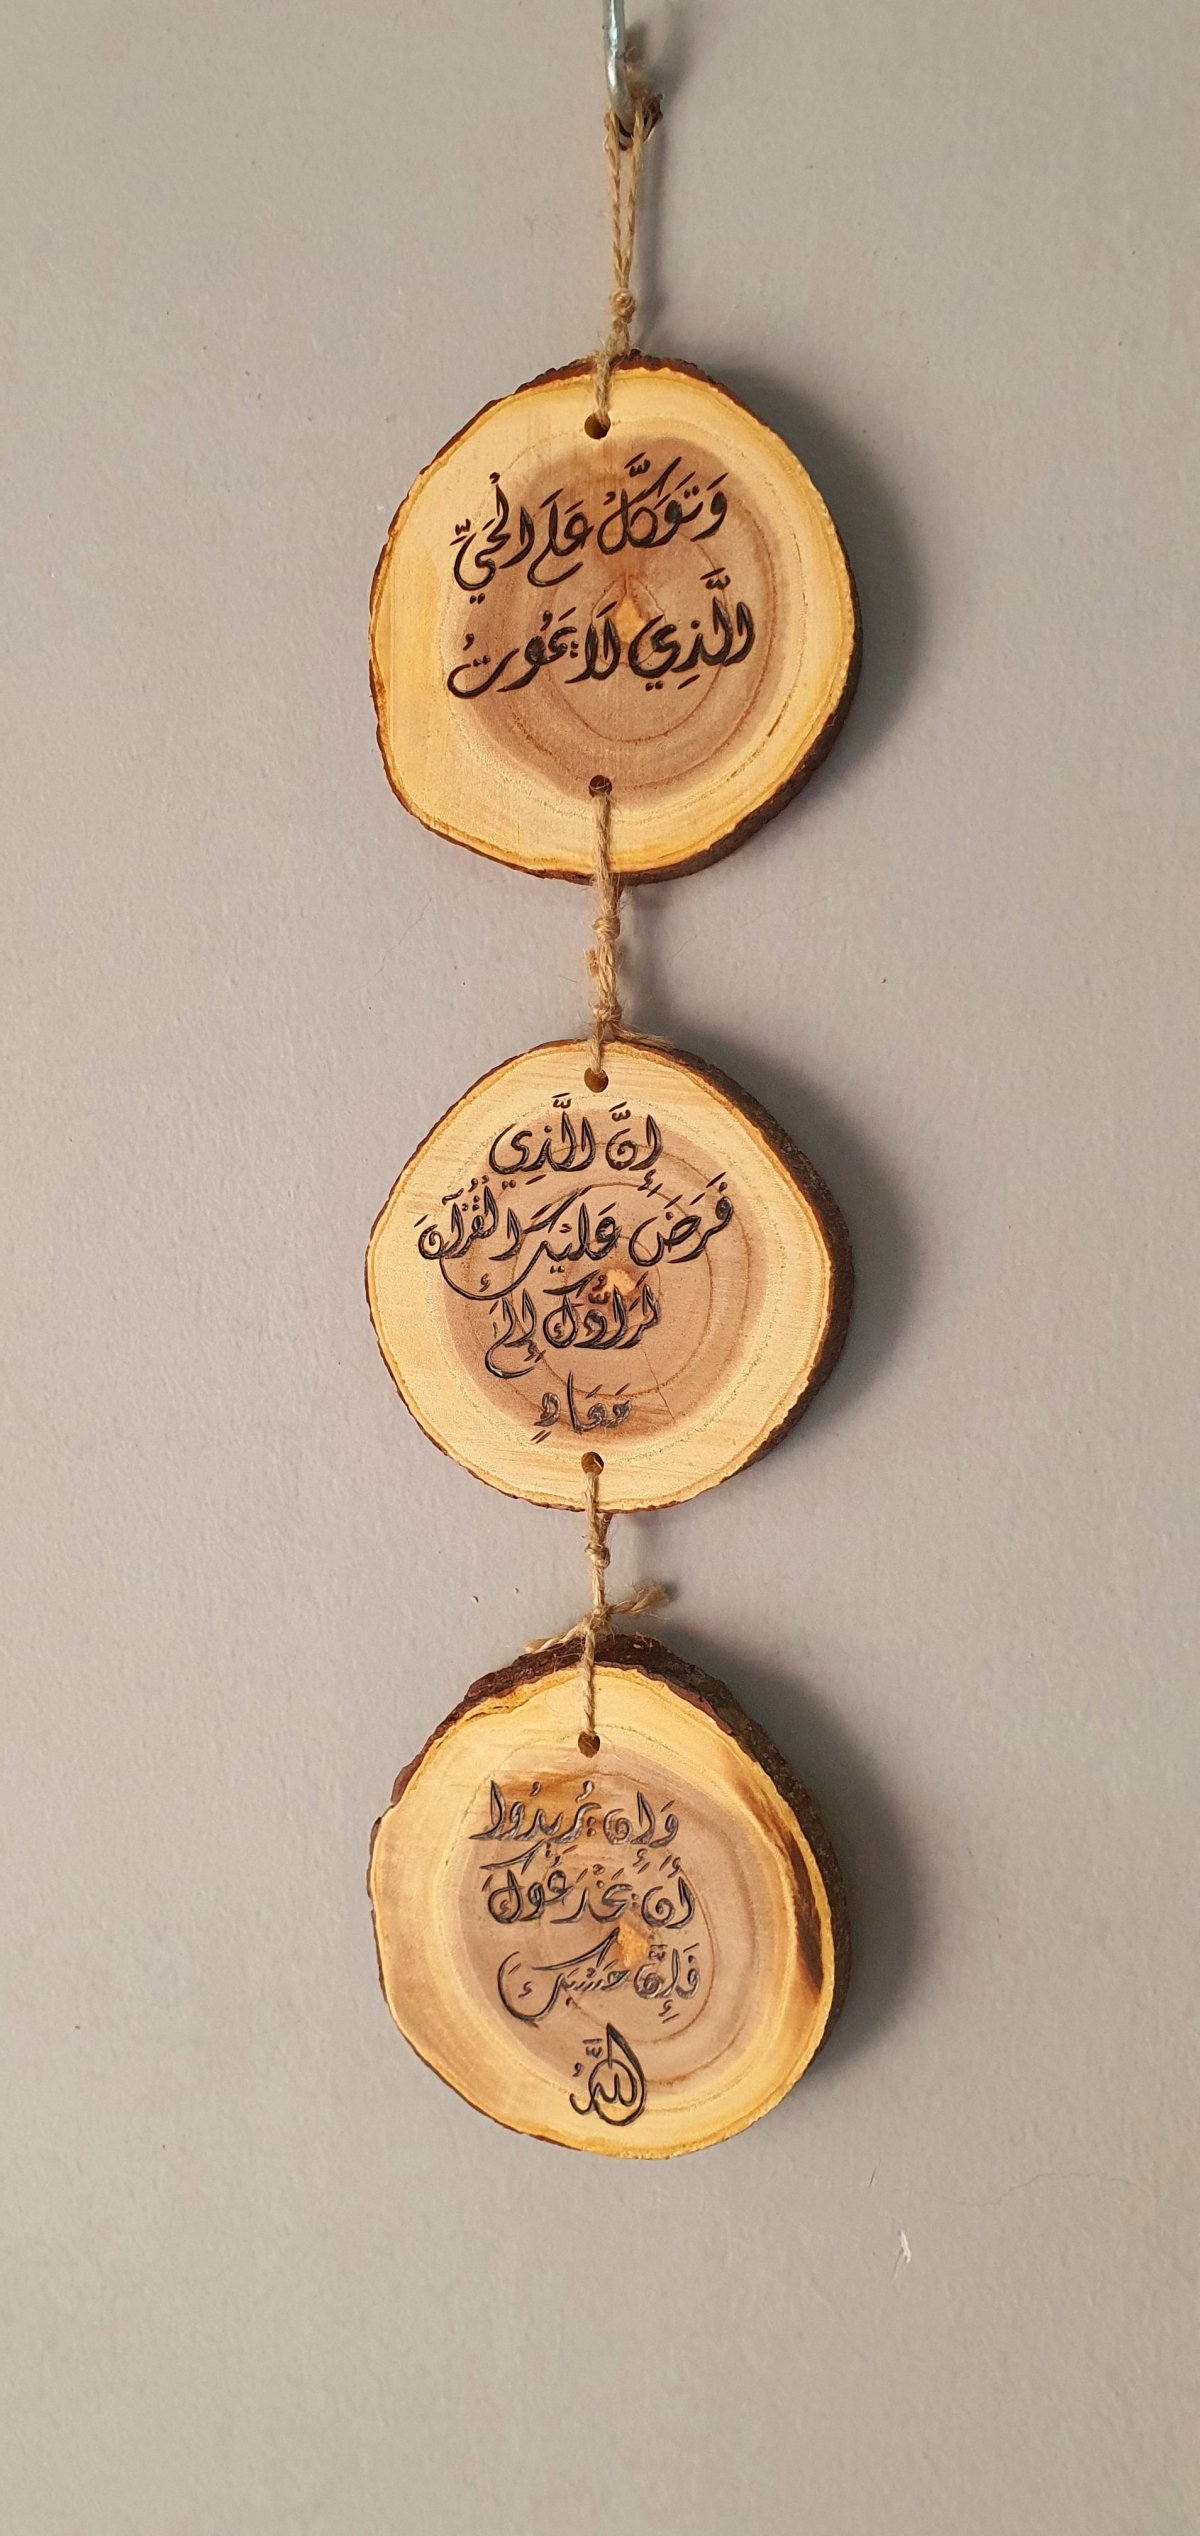 وَتَوَكَّلْ عَلَى الْحَيِّ
الَّذِي لَا يَمُوتُ
إِنَّ الَّذِي
فَرَضَ عَلَيْكَ الْقُرْآنَ
لَرَادُّكَ إِلَى
مَعَادٍ
وَإِن يُرِيدُوا
أَن يَخْدَعُوكَ
فَإِنَّ حَسْبَكَ
اللَّهُ